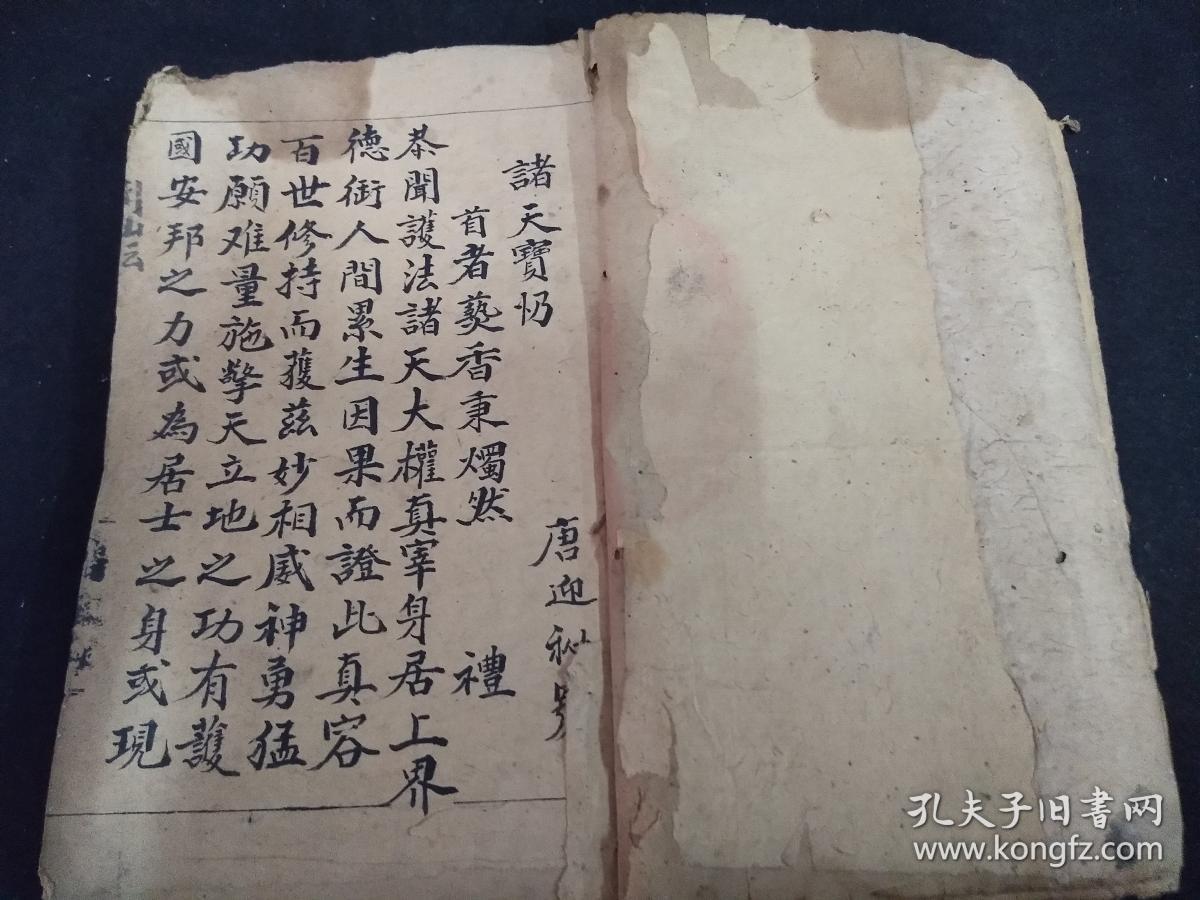 唐迎秋号
諸天寶忉
首者爇香秉燭然 禮
恭聞護法諸天大權真宰身居上界
德衒人間累生因果而證比真容
百世修持而獲茲妙相威神勇猛
功願难量施擎天立地之功有護
國安邦之力或為居士之身或現
孔夫子旧书网
www.kongfz.com